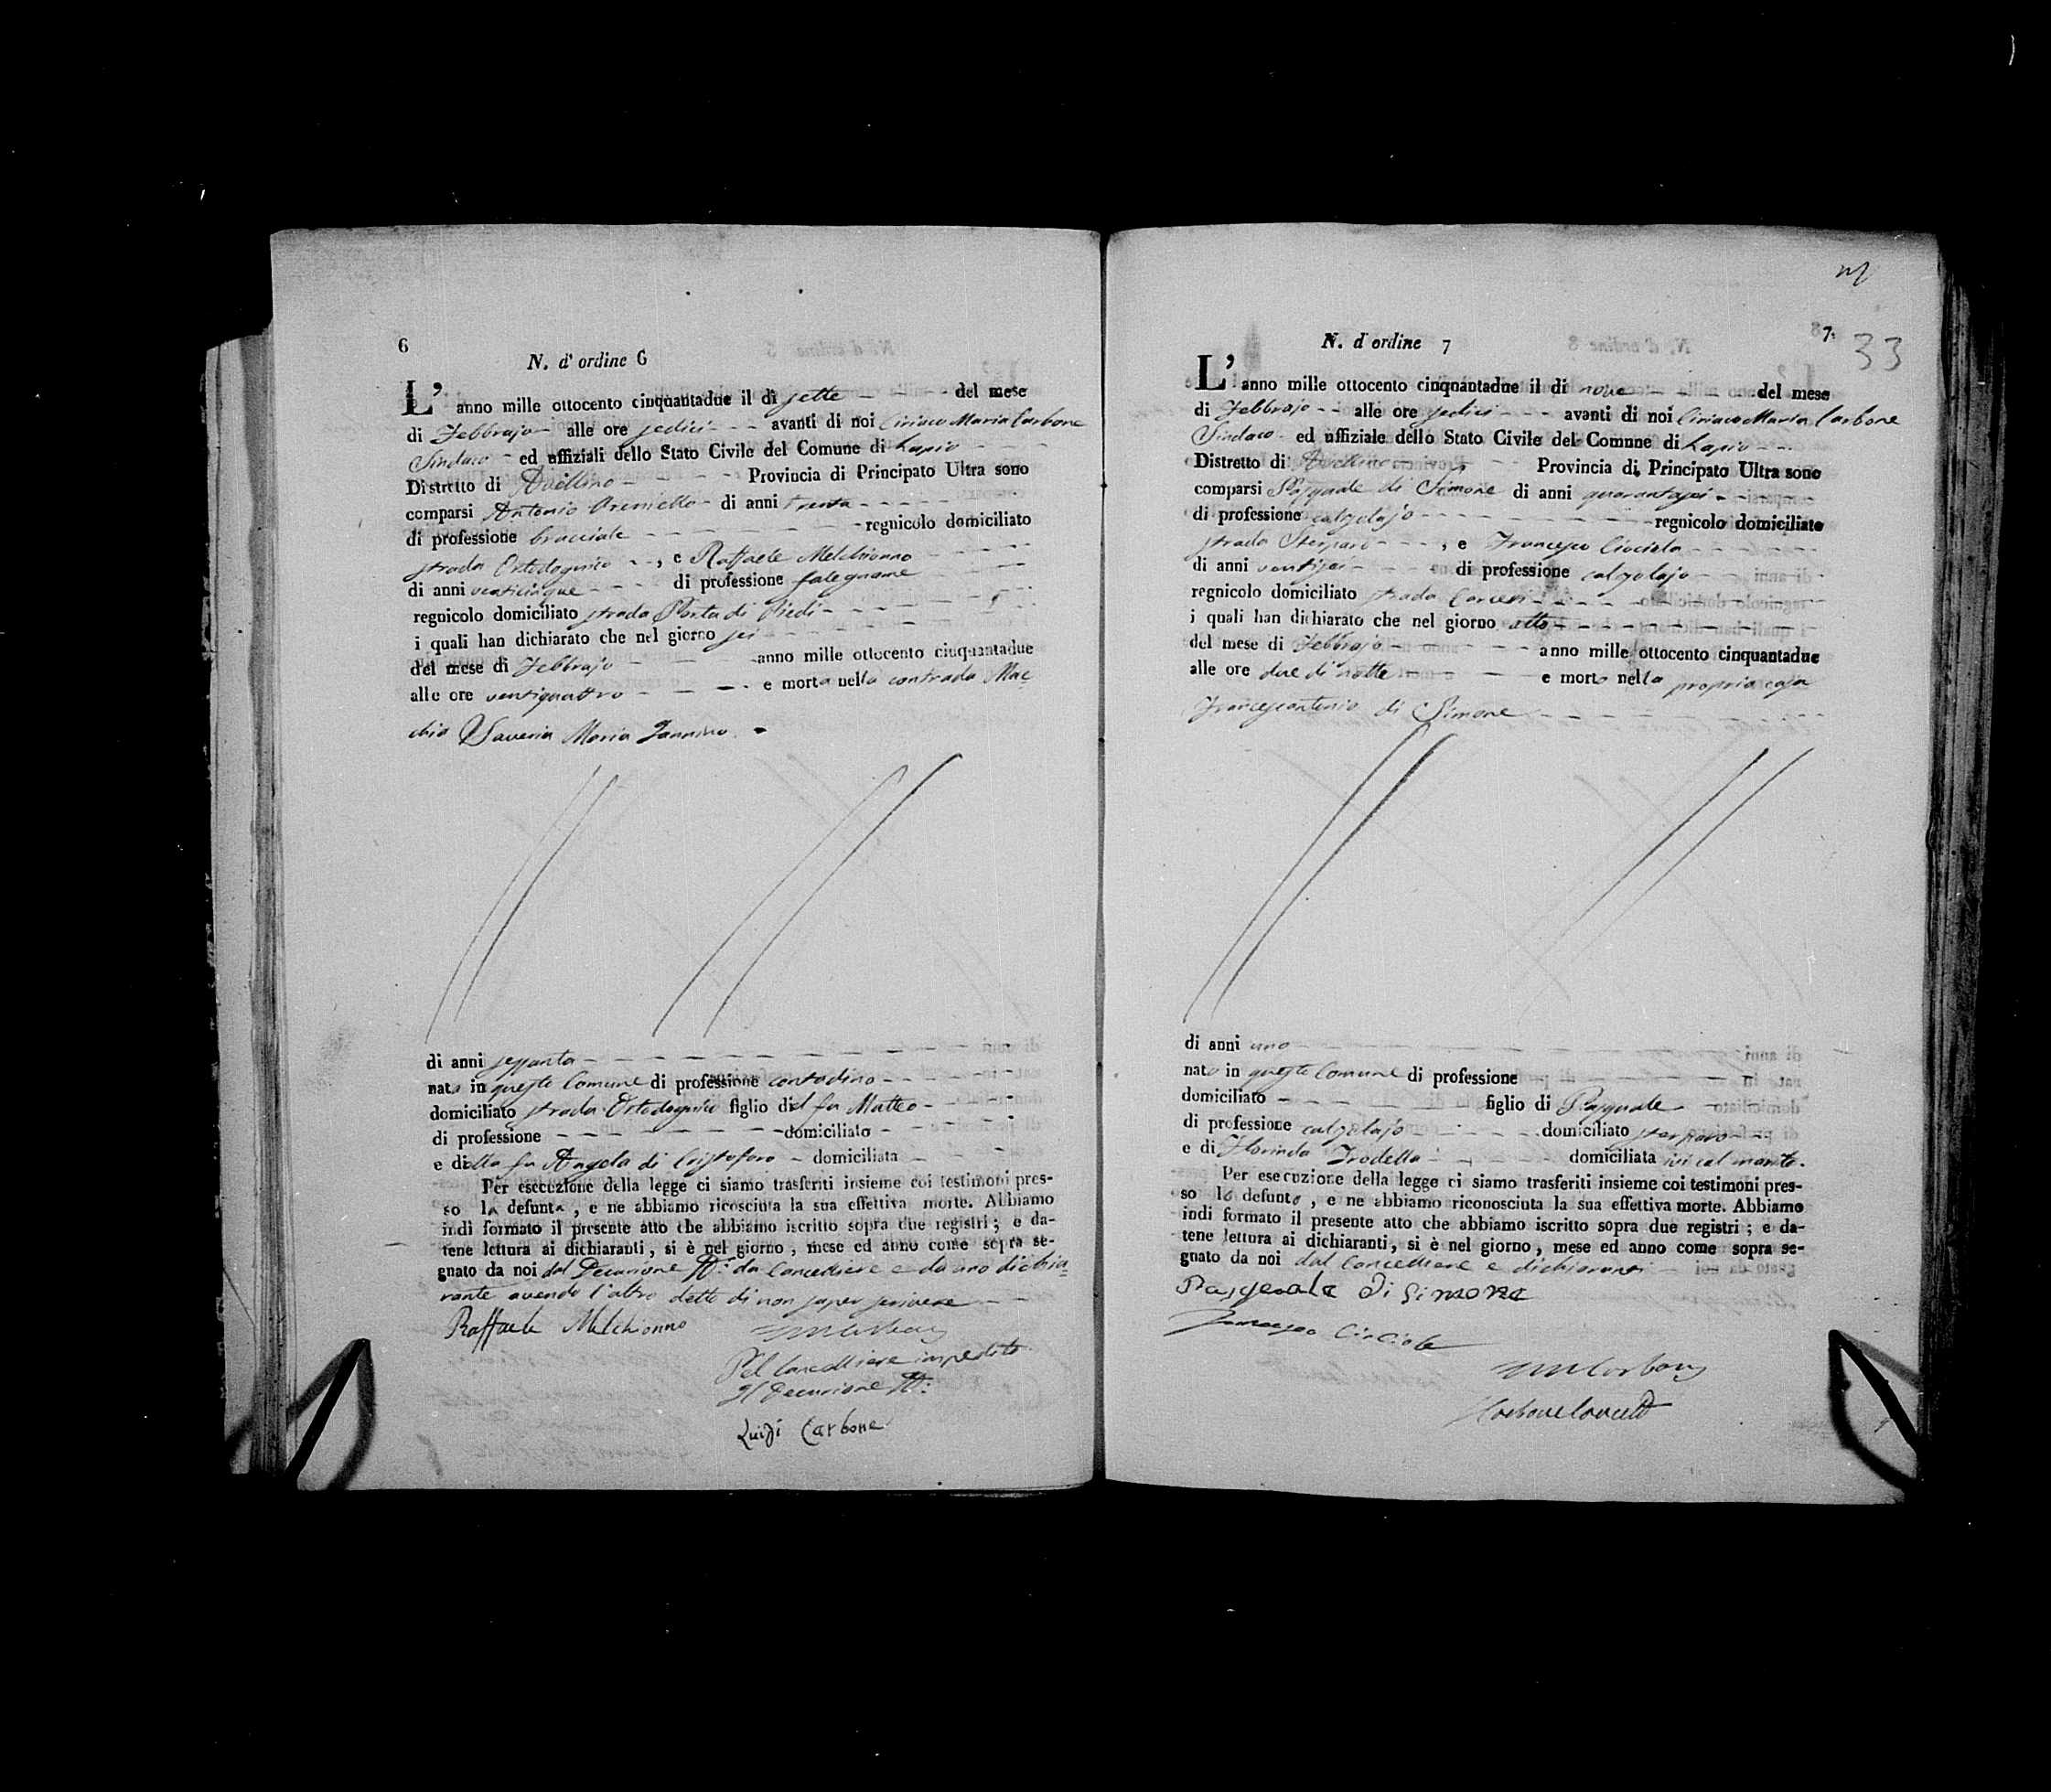 6
N. d' ordine 6
L' anno mille ottocento cinquantadue il dì sette del mese
di Febbrajo alle ore sedici avanti di noi Ciriaco Maria Carbone
Sindaco ed uffiziali dello Stato Civile del Comune di Lapio
Distretto di Avellino Provincia di Principato Ultra sono
comparsi Antonio di anni trenta
di professione bracciale regnicolo domiciliato
strada , e Raffaele Melchionno
di anni venticinque di professione falegname
regnicolo domiciliato strada Porta di Piedi
i quali han dichiarato che nel giorno sei
del mese di Febbrajo anno mille ottocento cinquantadue
alle ore ventiquattro e morta nella contrada Mac=
chia Saveria Maria Jannino
di anni sessanta
nata in questo Comune di professione contadina
domiciliato strada figlio del fu Matteo
di professione domiciliato
e della fu Angela di Cristofaro domiciliata
Per esecuzione della legge ci siamo trasferiti insieme coi testimoni pres-
so la defunta, e ne abbiamo ricosciuta la sua effettiva morte. Abbiamo
indi formato il presente atto che abbiamo iscritto sopra due registri; e da-
tene lettura ai dichiaranti, si è nel giorno, mese ed anno come sopra se-
gnato da noi dal Decurione da Cancelliere e da uno dichia=
rante avendo l'altro detto di non saper scrivere
Raffaele Melchionno
Pel Cancelliere impedito
Il Decurione
Luigi Carbone
7.
33
N. d' ordine 7
L' anno mille ottocento cinquantadue il dì nove del mese
di Febbrajo alle ore sedici avanti di noi Ciriaco Maria Carbone
Sindaco ed uffiziale dello Stato Civile del Comune di Lapio
Distretto di Avellino Provincia di Principato Ultra sono
comparsi Pasquale di Simone di anni quarantasei
di professione calzolajo regnicolo domiciliato
strada Sterparo , e Francesco Ciociola
di anni ventisei di professione calzolajo
regnicolo domiciliato strada Carceri
i quali han dichiarato che nel giorno otto
del mese di Febbrajo anno mille ottocento cinquantadue
alle ore due di notte e morto nella propria casa
Francescantonio di Simone
di anni uno
nato in questo Comune di professione
domiciliato figlio di Pasquale
di professione calzolajo domiciliato sterparo
e di Florinda Trodella domiciliata ivi col marito.
Per esecuzione della legge ci siamo trasferiti insieme coi testimoni pres-
so lo defunto, e ne abbiamo riconosciuta la sua effettiva morte. Abbiamo
indi formato il presente atto che abbiamo iscritto sopra due registri; e da-
tene lettura ai dichiaranti, si è nel giorno, mese ed anno come sopra se-
gnato da noi dal Cancelliere e dichiaranti
Pasquale Di Simone
Francesco Ciociola
Carbone